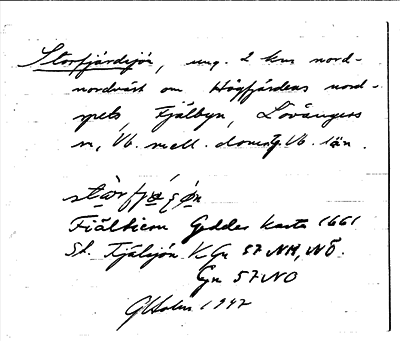 Storfjärdsjön, ung. 2 km nord-
nordväst om Högfjärdens nord-
spets, Fjälbyn, Lövångers
sn, Vb. mell. domsg. Vb. län.
Fiälbiem Geddes karta 1661
St. Fjälsjön K Gn 57 NH, NÖ.
Gn 57 NO
GHolm 1947